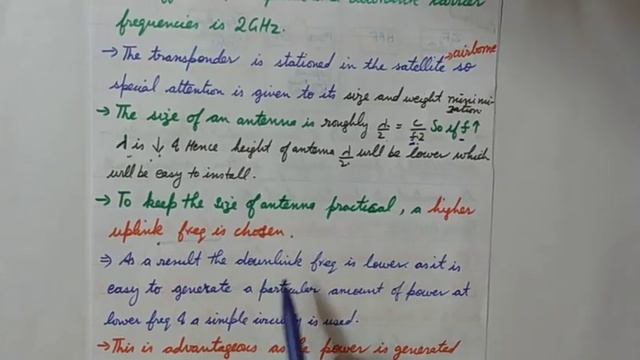 frequencies is 2GHz.
→ The transponder is stationed in the satellite → airborne so
special attention is given to its size and weight minimization
→ The size of an antenna is roughly λ/2 = c/f.2 So if f↑
λ is ↓ & Hence height of antenna λ/2 will be lower which
will be easy to install.
→ To keep the size of antenna practical, a higher
uplink freq is chosen.
⇒ As a result the downlink freq is lower as it is
easy to generate a particular amount of power at
lower freq & a simple is used.
→ This is advantageous as power is generated